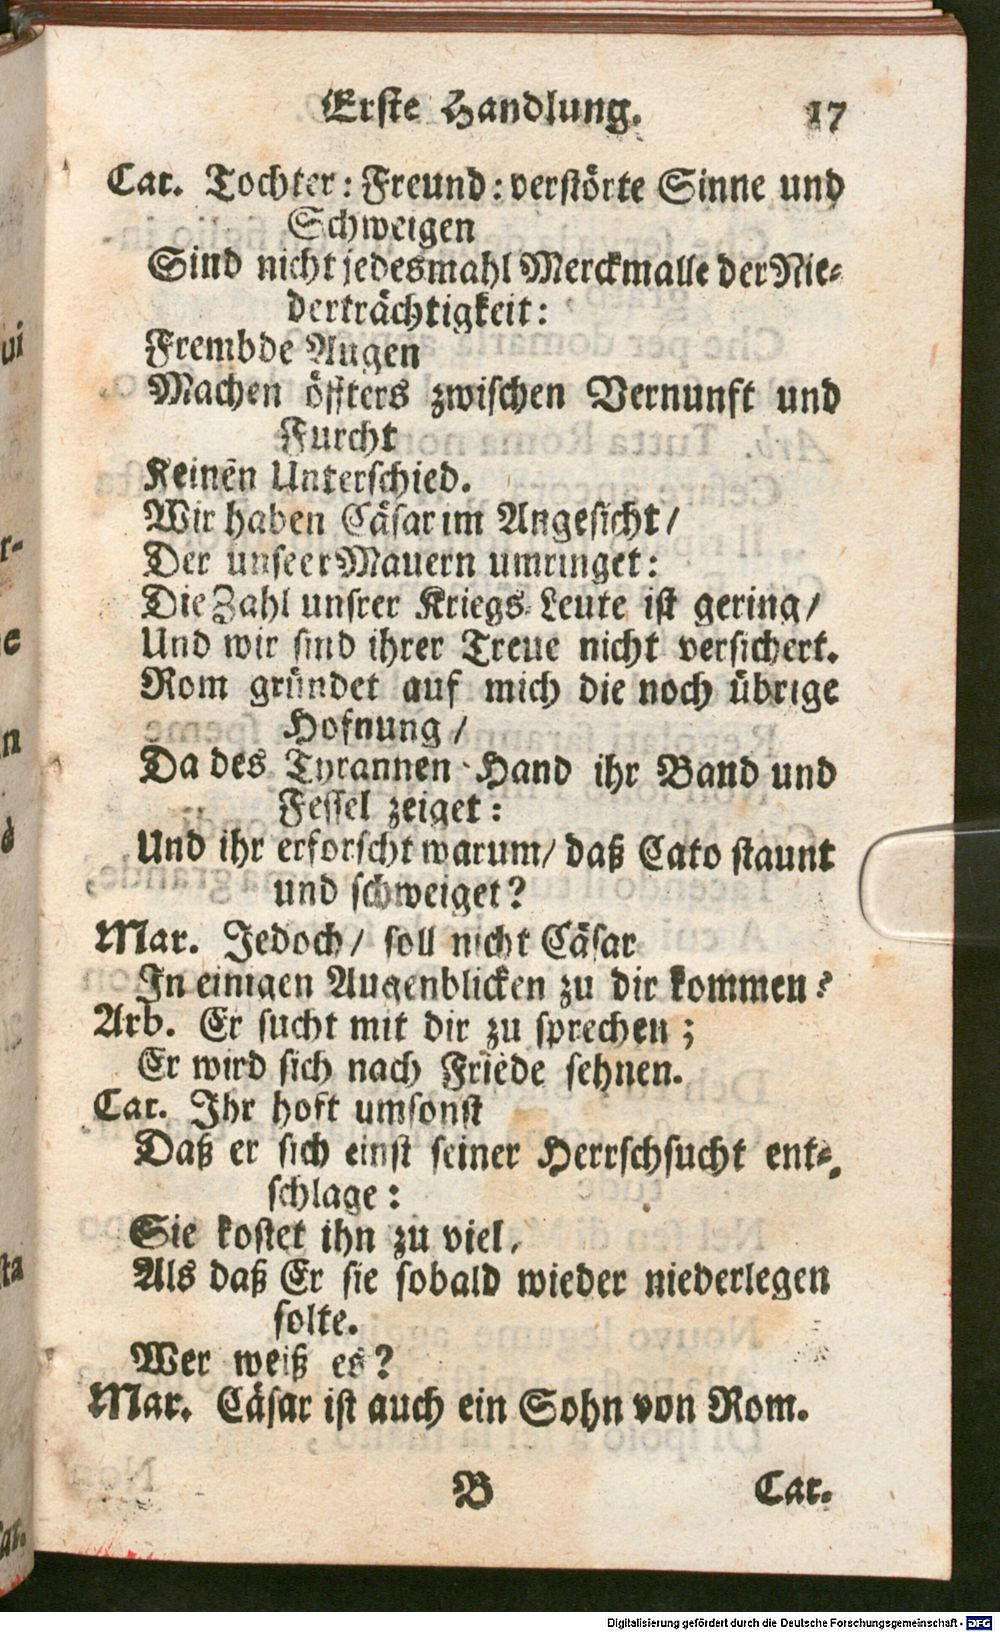 Erste Handlung. 17
Cat. Tochter: Freund: verstörte Sinne und
Schweigen
Sind nicht jedesmahl Merckmalle der Nie-
derträchtigkeit:
Frembde Augen
Machen öffters zwischen Vernunft und
Furcht
Keinen Unterschied.
Wir haben Cäsar im Angesicht/
Der unseer Mauern umringet:
Die Zahl unsrer Kriegs-Leute ist gering/
Und wir sind ihrer Treue nicht versichert.
Rom gründet auf mich die noch übrige
Hofnung/
Da des Tyrannen Hand ihr Band und
Fessel zeiget:
Und ihr erforscht warum/ daß Cato staunt
und schweiget?
Mar. Jedoch/ soll nicht Cäsar
In einigen Augenblicken zu dir kommen?
Arb. Er sucht mit dir zu sprechen;
Er wird sich nach Friede sehnen.
Cat. Ihr hoft umsonst
Daß er sich einst seiner Herrschsucht ent-
schlage:
Sie kostet ihn zu viel,
Als daß Er sie sobald wieder niederlegen
solte.
Wer weiß es?
Mar. Cäsar ist auch ein Sohn von Rom.
B Cat.
Digitalisierung gefördert durch die Deutsche Forschungsgemeinschaft - DFG